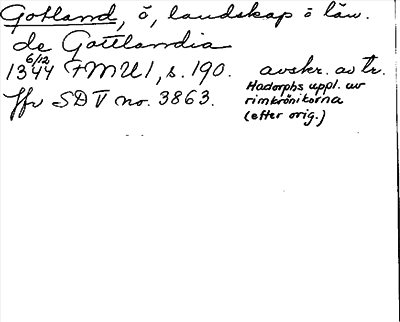 Gotland, ö, landskap o län.
de Gottlandia
6/12
1344 FMU 1, s. 190. avskr. av tr.
Hadorphs uppl. av
rimkrönikorna
(efter orig.)
Jfr SD V no. 3863.